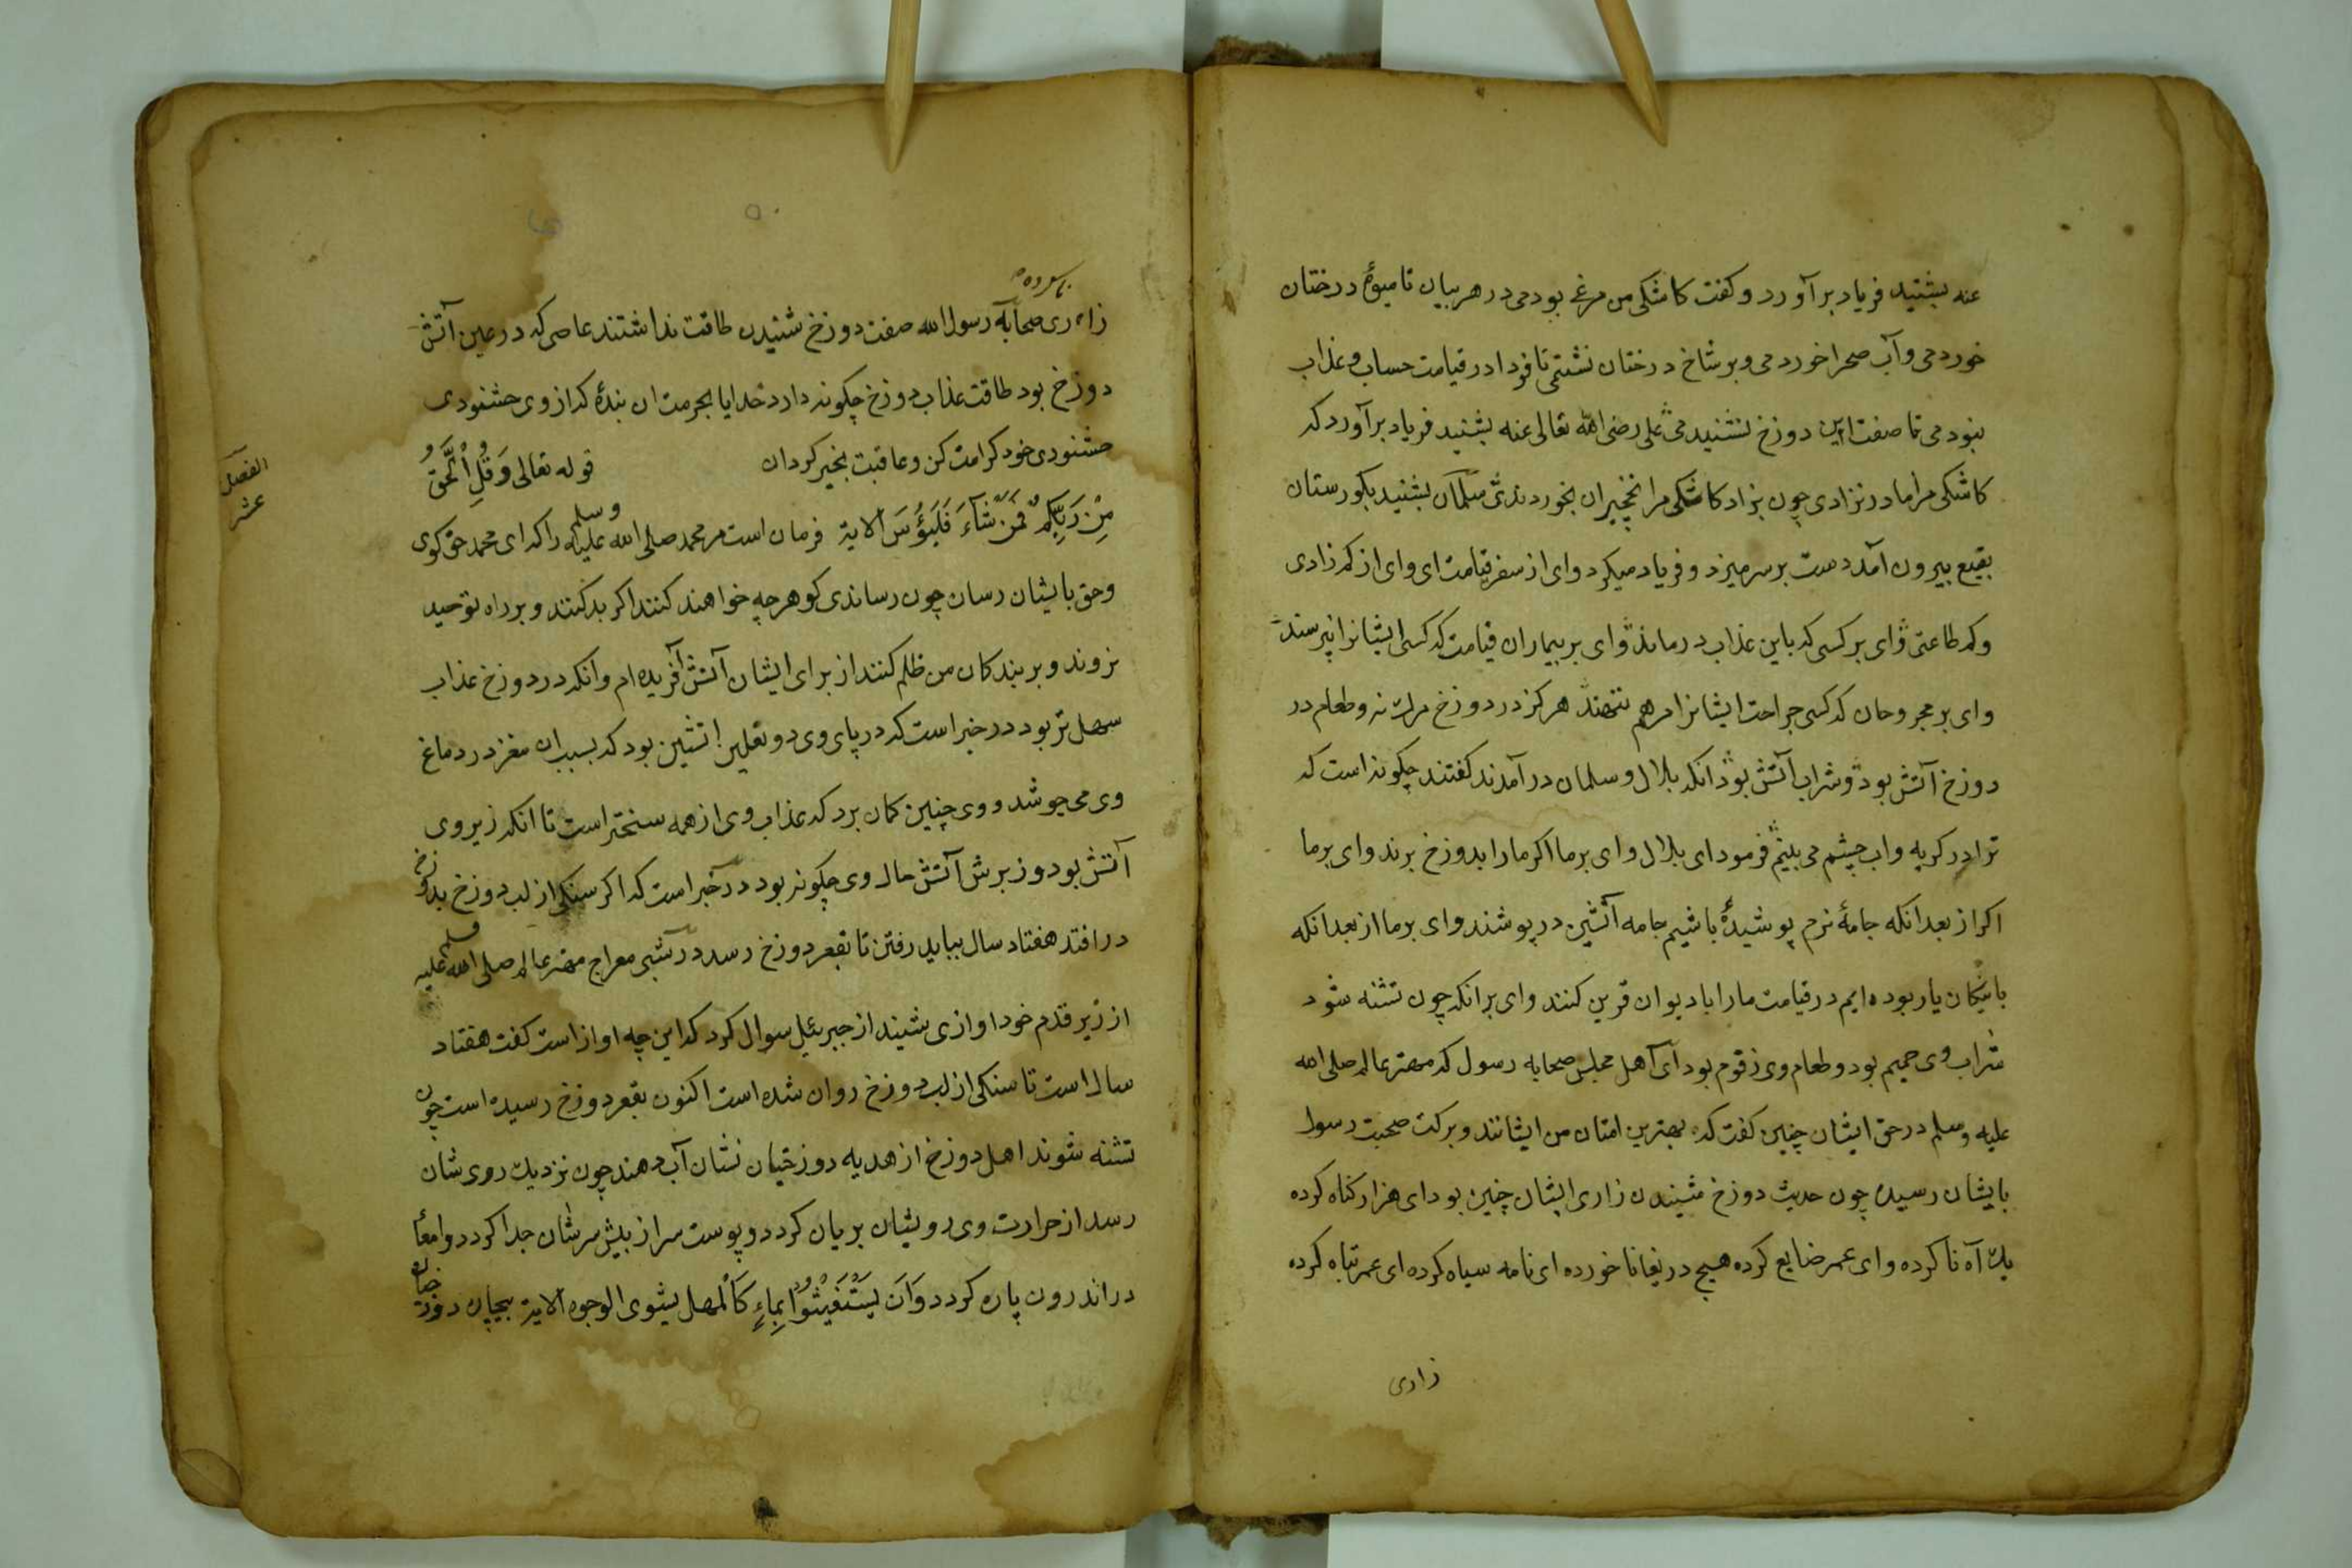 عنه بشنید فریاد برآورد و کفت کاشکی من مرغی بودمی در هر بیابان تا میوهٔ درختان
خوردمی و آب صحرا خوردمی و بر شاخ درختان نشستمی تا فردا در قیامت حساب و عذاب
نبودمی تا صفت این دوزخ نشنیدمی علی رضی الله تعالی عنه بشنید فریاد برآورد که
کاشکی مرا مادر نزادی چون بزاد کاشکی مرا نخچیران بخوردندی سلمان بشنید بکورستان
بقیع بیرون آمد دست بر سر میزد و فریاد میکرد وای از سفر قیامت ای وای از کم زادی
و کم طاعتی وای بر کسی که باین عذاب درماند وای بر بیماران قیامت که کسی ایشانرا نپرسند
وای بر مجروحان که کسی جراحت ایشانرا مرهم ننهند هرکز در دوزخ مرک نه و طعام در
دوزخ آتش بود و شراب آتش بود انکه بلال و سلمان درآمدند کفتند چکونه است که
ترا در کریه و اب چشم می بینم فرمود ای بلال وای بر ما اکر ما را بدوزخ برند وای بر ما
اکر از بعد انکه جامهٔ نرم پوشیدهٔ باشیم جامه آتشین در پوشند وای بر ما از بعد انکه
با نیکان یار بوده ایم در قیامت ما را با دیوان قرین کنند وای بر انکه چون تشنه شود
شراب وی حمیم بود و طعام وی زقوم بود ای اهل مجلس صحابه رسول که مهتر عالم صلی الله
علیه وسلم در حق ایشان چنین کفت که بهترین امتان من ایشانند و برکت صحبت رسول
بایشان رسیده چون حدیث دوزخ شنیدن زاری ایشان چنین بود ای هزار کناه کرده
یک آه نا کرده وای عمر ضایع کرده هیچ دریغا نا خورده ای نامه سیاه کرده ای عمر تباه کرده
زاری
زاری صحابه رسول الله صفت دوزخ شنیدن طاقت نداشتند عاصی که در عین آتش
دوزخ بود طاقت عذاب دوزخ چکونه دارد خدایا بحرمت ان بندهٔ که از وی خشنودی
خشنودی خود کرامت کن و عاقبت بخیر کردان قوله تعالی وَقُلِ الْحَقُّ
مِنْ رَبِّكُمْ فَمَنْ شَآءَ فَلْيُؤْمِنْ الایة فرمان است مر محمد صلی الله علیه وسلم را که ای محمد حق کوی
و حق بایشان رسان چون رساندی کو هر چه خواهند کنند اکر بد کنند و بر راه توحید
نروند و بر بندکان من ظلم کنند از برای ایشان آتش آفریده ام و انکه در دوزخ عذاب
سهل تر بود در خبر است که در پای وی دو نعلین اتشین بود که بسبب ان مغز در دماغ
وی می جوشد و وی چنین کمان برد که عذاب وی از همه سختر است تا انکه زیر وی
آتش بود و زبرش آتش حال وی چکونه بود در خبر است که اکر سنکی از لب دوزخ بدوزخ
درافتد هفتاد سال بباید رفتن تا بقعر دوزخ رسد در شب معراج مهتر عالم صلی الله علیه وسلم
از زیر قدم خود اوازی شنید از جبرئیل سوال کرد که این چه اواز است کفت هفتاد
سال است تا سنکی از لب دوزخ روان شده است اکنون بقعر دوزخ رسیده است چون
تشنه شوند اهل دوزخ از هدیه دوزخیان نشان آب دهند چون نزدیک روی شان
رسد از حرارت وی رویشان بریان کردد و پوست سر از بیش سرشان جدا کردد و امعا
در اندرون پاره کردد وَاَن يَسْتَغِيثُوا بِمَاءٍ كَالْمُهْل یشوی الوجوه الایة بیچاره دوزخیان
الفصل
عشر